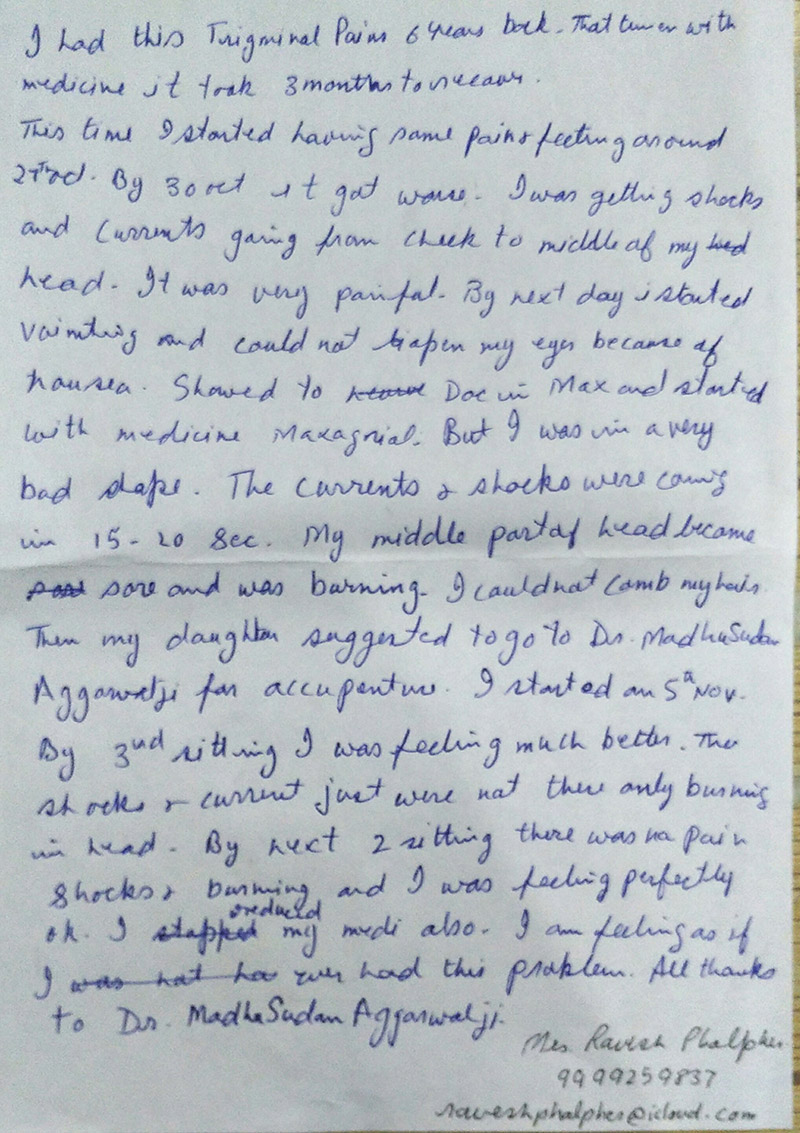 I had this Trigminal Pains 6 years back. That time with
medicine it took 3 months to recover.
This time I started having same pain & feeling around
oct. By 30 oct it got worse. I was getting shocks
and currents going from cheek to middle of my
head. It was very painful. By next day i started
and could not open my eyes because of
nausea. Showed to Doc in Max and started
with medicine But I was in a very
bad shape. The currents & shocks were coming
in 15-20 Sec. My middle part of head became
sore and was burning. I could not comb my hair.
Then my daughter suggested to go to Dr. MadhuSudan
Aggarwalji for accupenture. I started on 5th Nov.
By 3nd sitting I was feeling much better. The
shocks & current just were not there only burning
in head. By next 2 sitting there was no pain
shocks & burning and I was feeling perfectly
ok. I reduced my medi also. I am feeling as if
I ever had this problem. All thanks
to Dr. MadhuSudan Aggarwalji.
Mrs Ravesh Phalpher
9999259837
raveshphalpher@icloud.com